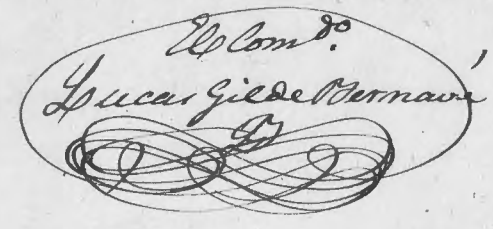 El Com.do
Lucas Gil de Bernavé